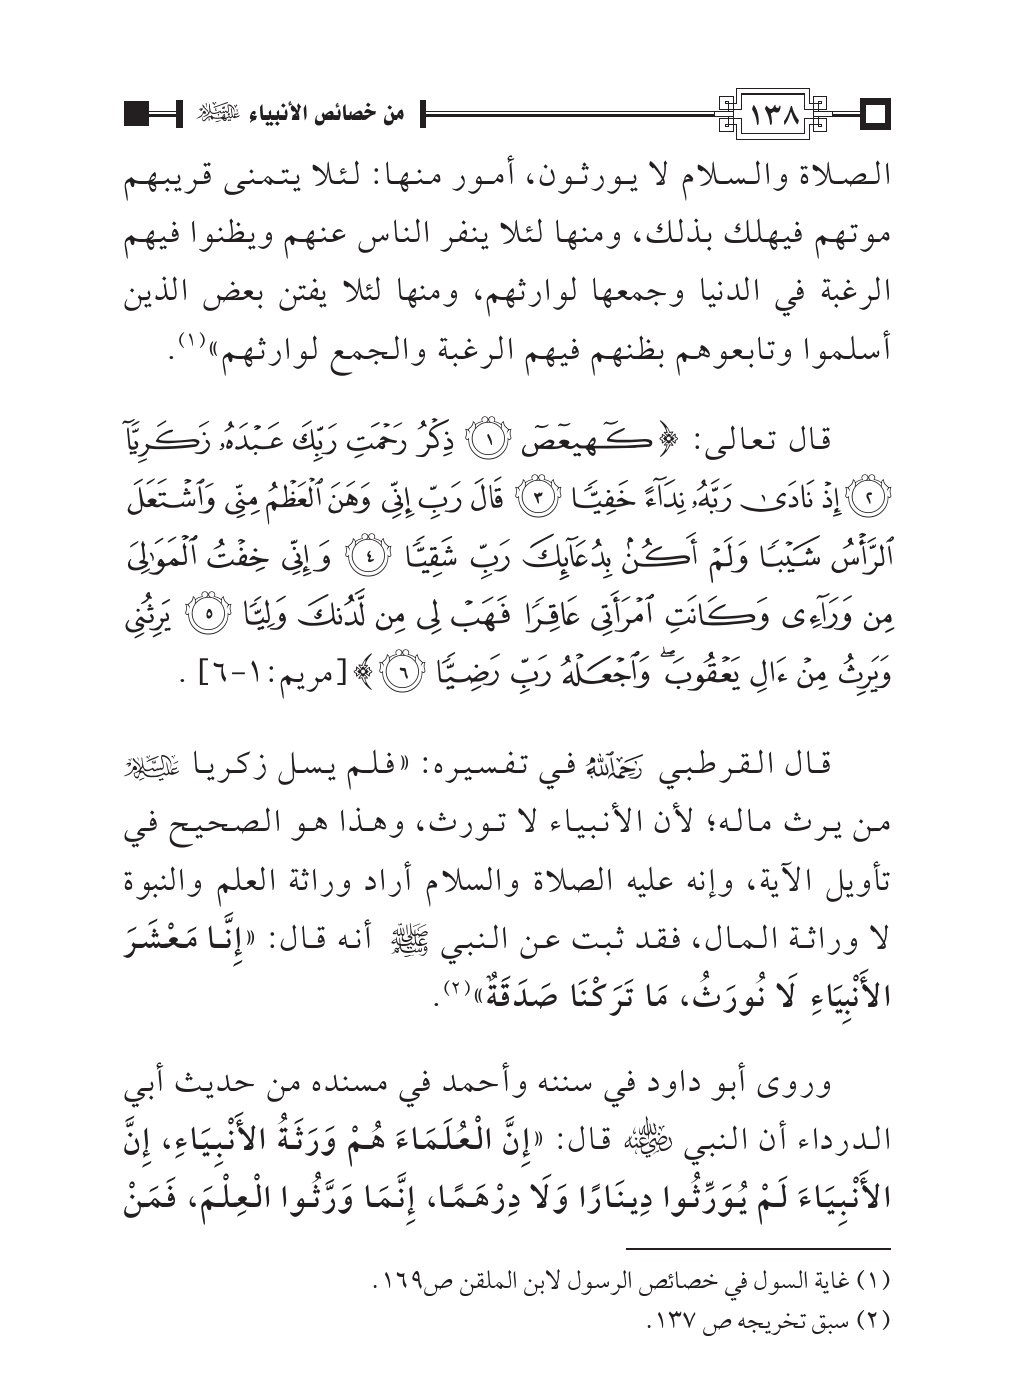 ١٣٨ من خصائص الأنبياء عليهم السلام
الصلاة والسلام لا يورثون، أمور منها: لئلا يتمنى قريبهم
موتهم فيهلك بذلك، ومنها لئلا ينفر الناس عنهم ويظنوا فيهم
الرغبة في الدنيا وجمعها لوارثهم، ومنها لئلا يفتن بعض الذين
أسلموا وتابعوهم بظنهم فيهم الرغبة والجمع لوارثهم»(١).
قال تعالى: ﴿كٓهيعٓصٓ ١ ذِكْرُ رَحْمَتِ رَبِّكَ عَبْدَهُۥ زَكَرِيَّآ
٢ إِذْ نَادَىٰ رَبَّهُۥ نِدَآءً خَفِيًّا ٣ قَالَ رَبِّ إِنِّى وَهَنَ ٱلْعَظْمُ مِنِّى وَٱشْتَعَلَ
ٱلرَّأْسُ شَيْبًا وَلَمْ أَكُنۢ بِدُعَآئِكَ رَبِّ شَقِيًّا ٤ وَإِنِّى خِفْتُ ٱلْمَوَٰلِىَ
مِن وَرَآءِى وَكَانَتِ ٱمْرَأَتِى عَاقِرًا فَهَبْ لِى مِن لَّدُنكَ وَلِيًّا ٥ يَرِثُنِى
وَيَرِثُ مِنْ ءَالِ يَعْقُوبَ ۖ وَٱجْعَلْهُ رَبِّ رَضِيًّا ٦﴾ [مريم:١-٦] .
قال القرطبي رحمه الله في تفسيره: «فلم يسل زكريا عليه السلام
من يرث ماله؛ لأن الأنبياء لا تورث، وهذا هو الصحيح في
تأويل الآية، وإنه عليه الصلاة والسلام أراد وراثة العلم والنبوة
لا وراثة المال، فقد ثبت عن النبي ﷺ أنه قال: «إِنَّا مَعْشَرَ
الأَنْبِيَاءِ لَا نُورَثُ، مَا تَرَكْنَا صَدَقَةٌ»(٢).
وروى أبو داود في سننه وأحمد في مسنده من حديث أبي
الدرداء أن النبي رضي الله عنه قال: «إِنَّ الْعُلَمَاءَ هُمْ وَرَثَةُ الأَنْبِيَاءِ، إِنَّ
الأَنْبِيَاءَ لَمْ يُوَرِّثُوا دِينَارًا وَلَا دِرْهَمًا، إِنَّمَا وَرَّثُوا الْعِلْمَ، فَمَنْ
(١) غاية السول في خصائص الرسول لابن الملقن ص١٦٩.
(٢) سبق تخريجه ص ١٣٧.